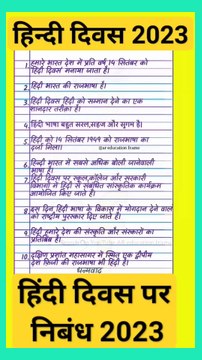 हिन्दी दिवस 2023
1. हमारे भारत देश में प्रति वर्ष 14 सितंबर को
हिंदी दिवस मनाया जाता है।
2. हिंदी भारत की राजभाषा है।
3. हिंदी दिवस हिंदी को सम्मान देने का एक
शानदार तरीका है।
4. हिंदी भाषा बहुत सरल, सहज और सुगम है।
5. हिंदी को 14 सितंबर 1949 को राजभाषा का
दर्जा मिला।
6. हिन्दी भारत में सबसे अधिक बोली जानेवाली
भाषा है।
7. हिंदी दिवस पर स्कूल, कॉलेज और सरकारी
विभागों में हिंदी से संबंधित सांस्कृतिक कार्यक्रम
आयोजित किए जाते है।
8. इस दिन हिंदी भाषा के विकास में योगदान देने वाले
को राष्ट्रीय पुरस्कार दिए जाते है।
9. हिंदी हमारे देश की संस्कृति और संस्कारों का
प्रतिबिंब है।
10. दक्षिण प्रशांत महासागर में स्थित एक द्वीपीय
देश फिजी की राजभाषा भी हिंदी है।
धन्यवाद
हिंदी दिवस पर
निबंध 2023